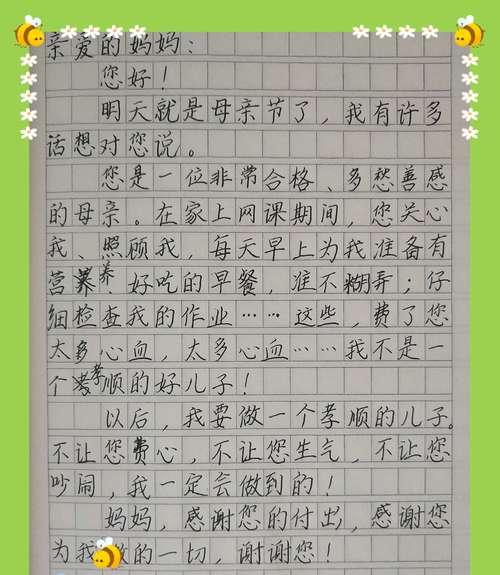 亲爱的妈妈：
您好！
明天就是母亲节了，我有许多
话想对您说。
您是一位非常合格、多愁善感
的母亲。在家上网课期间，您关心
我、照顾我，每天早上为我准备有
营养、好吃的早餐，准不糊弄；仔
细检查我的作业……这些，费了您
太多心血，太多心血……我不是一
个孝顺的好儿子！
以后，我要做一个孝顺的儿子。
不让您费心，不让您生气，不让您
吵闹，我一定会做到的！
妈妈，感谢您的付出，感谢您
为我的一切，谢谢您！